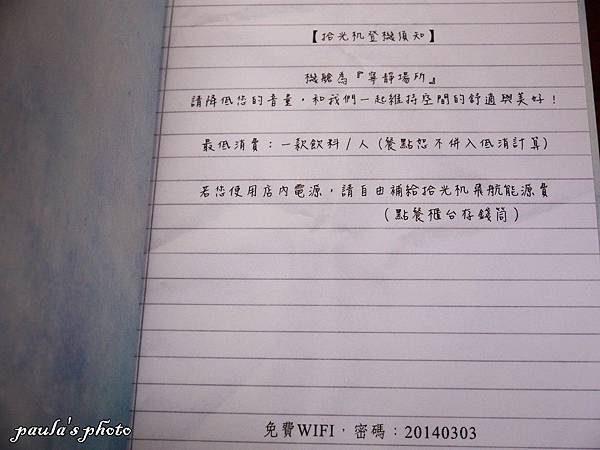 【拾光机登機須知】
機艙為『寧靜場所』
請降低您的音量，和我們一起維持空間的舒適與美好！
最低消費：一款飲料/人（餐點恕不併入低消計算）
若您使用店內電源，請自由補給拾光机飛航能源費
（點餐櫃台存錢筒）
免費WIFI，密碼：20140303
paula's photo